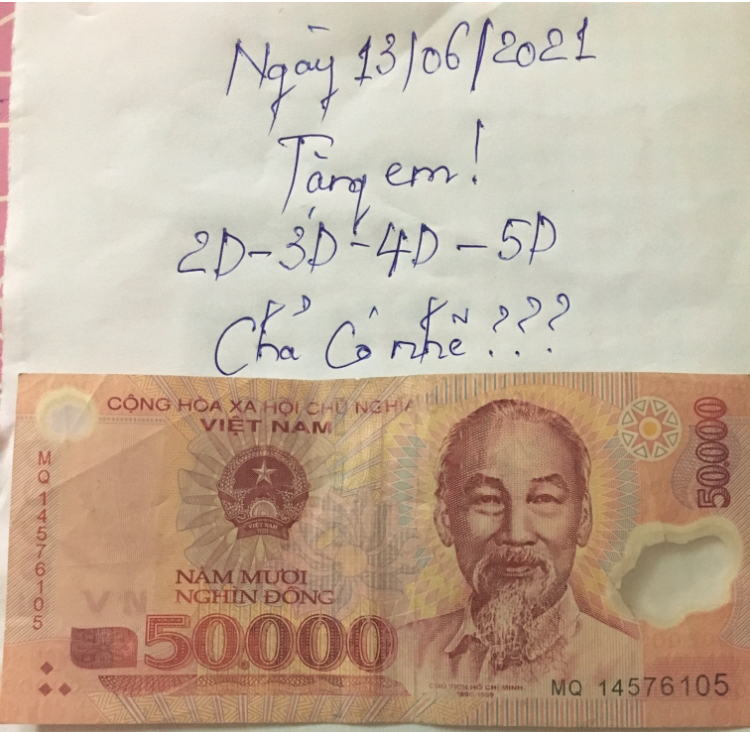 Ngày 13/06/2021
Tặng em!
2D-3D-4D-5D
Chả Có nhẽ???
CỘNG HÒA XÃ HỘI CHỦ NGHĨA
VIỆT NAM
50.000
MQ 14576105
VIỆT NAM
NĂM MƯƠI
NGHÌN ĐỒNG
VN
50.000
CHỦ TỊCH HỒ CHÍ MINH
1890-1969
MQ 14576105